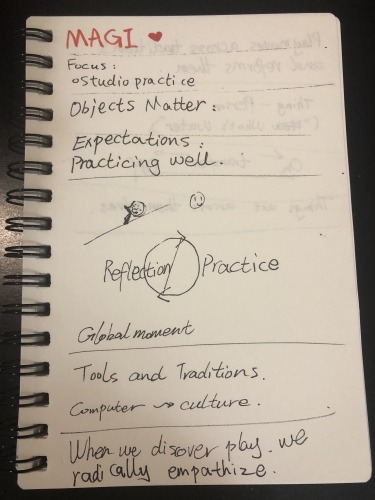 MAGI ♥
Focus:
◦Studio practice
Objects Matter:
Expectations:
Practicing well.
Reflection Practice
Global moment
Tools and Traditions.
Computer → culture.
When we discover play. we
radically empathize.